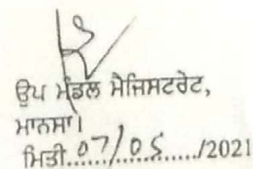 ਉਪ ਮੰਡਲ ਮੈਜਿਸਟਰੇਟ,
ਮਾਨਸਾ।
ਮਿਤੀ...07/05....../2021